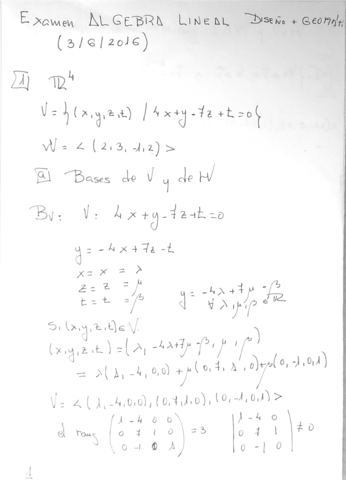 Examen ALGEBRA LINEAL Diseño +
(3/6/2016)
1 ℝ⁴
V = { (x,y,z,t) / 4x+y-7z+t=0 }
W = < (2,3,-1,2) >
a) Bases de V y de W
Bv: V: 4x+y-7z+t=0
y = -4x+7z-t
x = x = λ
z = z = μ
t = t = β
y = -4λ+7μ-β
∀ λ, μ, β ∈ ℝ
Si (x,y,z,t) ∈ V
(x,y,z,t) = (λ, -4λ+7μ-β, μ, β)
= λ(1,-4,0,0) + μ(0,7,1,0) + β(0,-1,0,1)
V = < (1,-4,0,0), (0,7,1,0), (0,-1,0,1) >
el rang
1 -4 0 0
0 7 1 0
0 -1 0 1
= 3
1 -4 0
0 7 1
0 -1 0
≠ 0
1